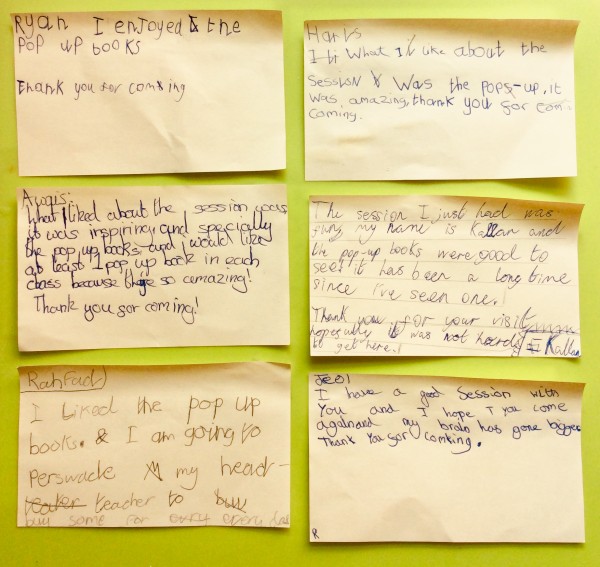 Ryan I enjoyed the
Pop up books
thank you for coming
Haris
What I like about the
session Was the pops-up, it
was, amazing, thank you for com
coming.
Awais:
What I liked about the session was
it was inspiring and specially
the pop up books and I would like
at least 1 pop up book in each
class because so amazing!
Thank you for coming!
The session I just had was
my name is Kallan and
the pop-up books were good to
see! it has been a long time
since I've seen one!
Thank you for your visit
hopefully it was not hard
to get here! Kallan
I Liked the pop up
books. & I am going to
Perswade my head-
teacher teacher to buy
buy some for every
Jeol
I have a good Session with
You and I hope you come
my brain has gone bigger
Thank You for comking.
R